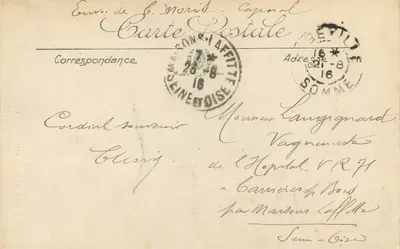 Env. de C. Marit. Caporal
Carte Postale
Correspondance
Adresse
MAISONS-LAFFITTE
7 *
23-8
16
SEINE ET OISE
16 *
21-8
16
SOMME
Cordial souvenir
Monsieur Lansignard
Vaguemestre
de l'Hopital V R 71
à Carrières s/ Bois
par Maisons Laffitte
Seine & Oise